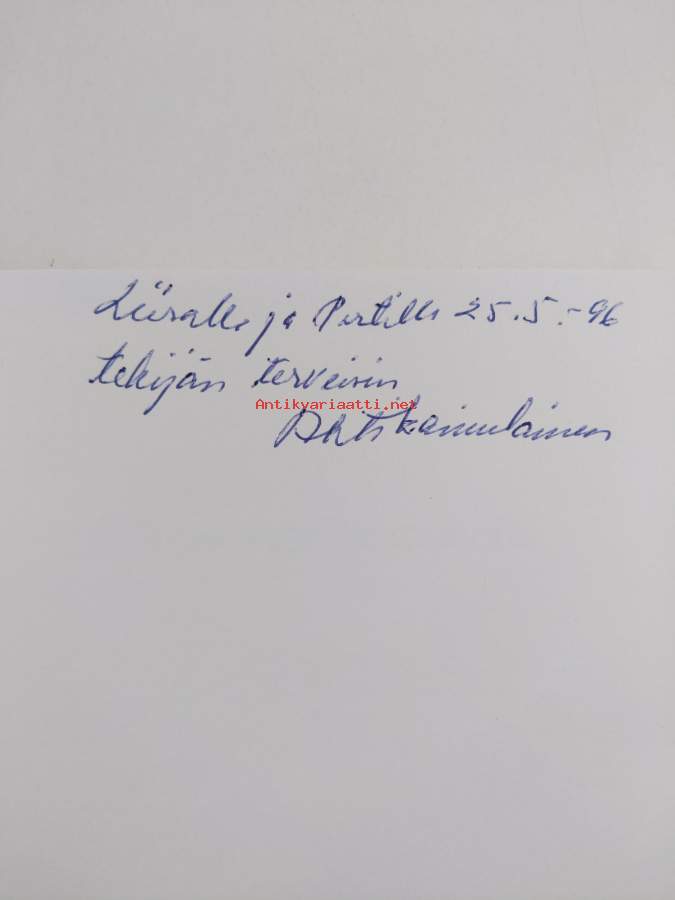 Liisalle ja Pertille 25.5.-96
tekijän terveisin
Antikvariaatti.net
Ahti Kaimulainen